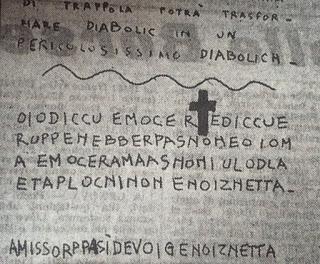 DI TRAPPOLA POTRÀ TRASFOR-
MARE DIABOLIC IN UN
PERICOLOSISSIMO DIABOLICH_
OIODICCU EMOCER EDICCUE
ROPPENEBBERPASNOMEO LOM
A EMOCERAMAASNOMI ULODLA
ETAPLOCNINON ENOIZNETTA_
AMISSORPPASÌDEVOIGENOIZNETTA